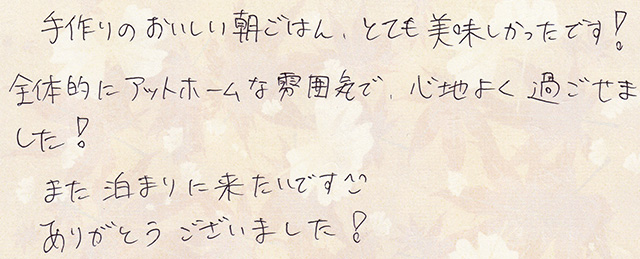 手作りのおいしい朝ごはん、とても美味しかったです!
全体的にアットホームな雰囲気で、心地よく過ごせま
した!
また泊まりに来たいです^^
ありがとうございました!